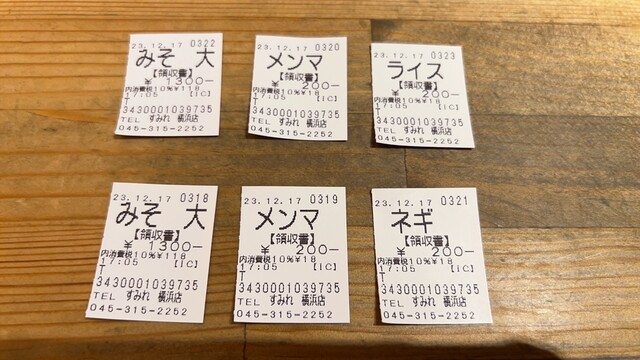 23.12.17 0322
みそ 大
【領収書】
¥ 1300-
内消費税10%¥118
17:05 [IC]
T
3430001039735
TEL すみれ 横浜店
045-315-2252
23.12.17 0320
メンマ
【領収書】
¥ 200-
内消費税10%¥18
17:05 [IC]
T
3430001039735
TEL すみれ 横浜店
045-315-2252
23.12.17 0323
ライス
【領収書】
¥ 200-
内消費税10%¥18
17:05 [IC]
T
3430001039735
TEL すみれ 横浜店
045-315-2252
23.12.17 0318
みそ 大
【領収書】
¥ 1300-
内消費税10%¥118
17:05 [IC]
T
3430001039735
TEL すみれ 横浜店
045-315-2252
23.12.17 0319
メンマ
【領収書】
¥ 200-
内消費税10%¥18
17:05 [IC]
T
3430001039735
TEL すみれ 横浜店
045-315-2252
23.12.17 0321
ネギ
【領収書】
¥ 200-
内消費税10%¥18
17:05 [IC]
T
3430001039735
TEL すみれ 横浜店
045-315-2252